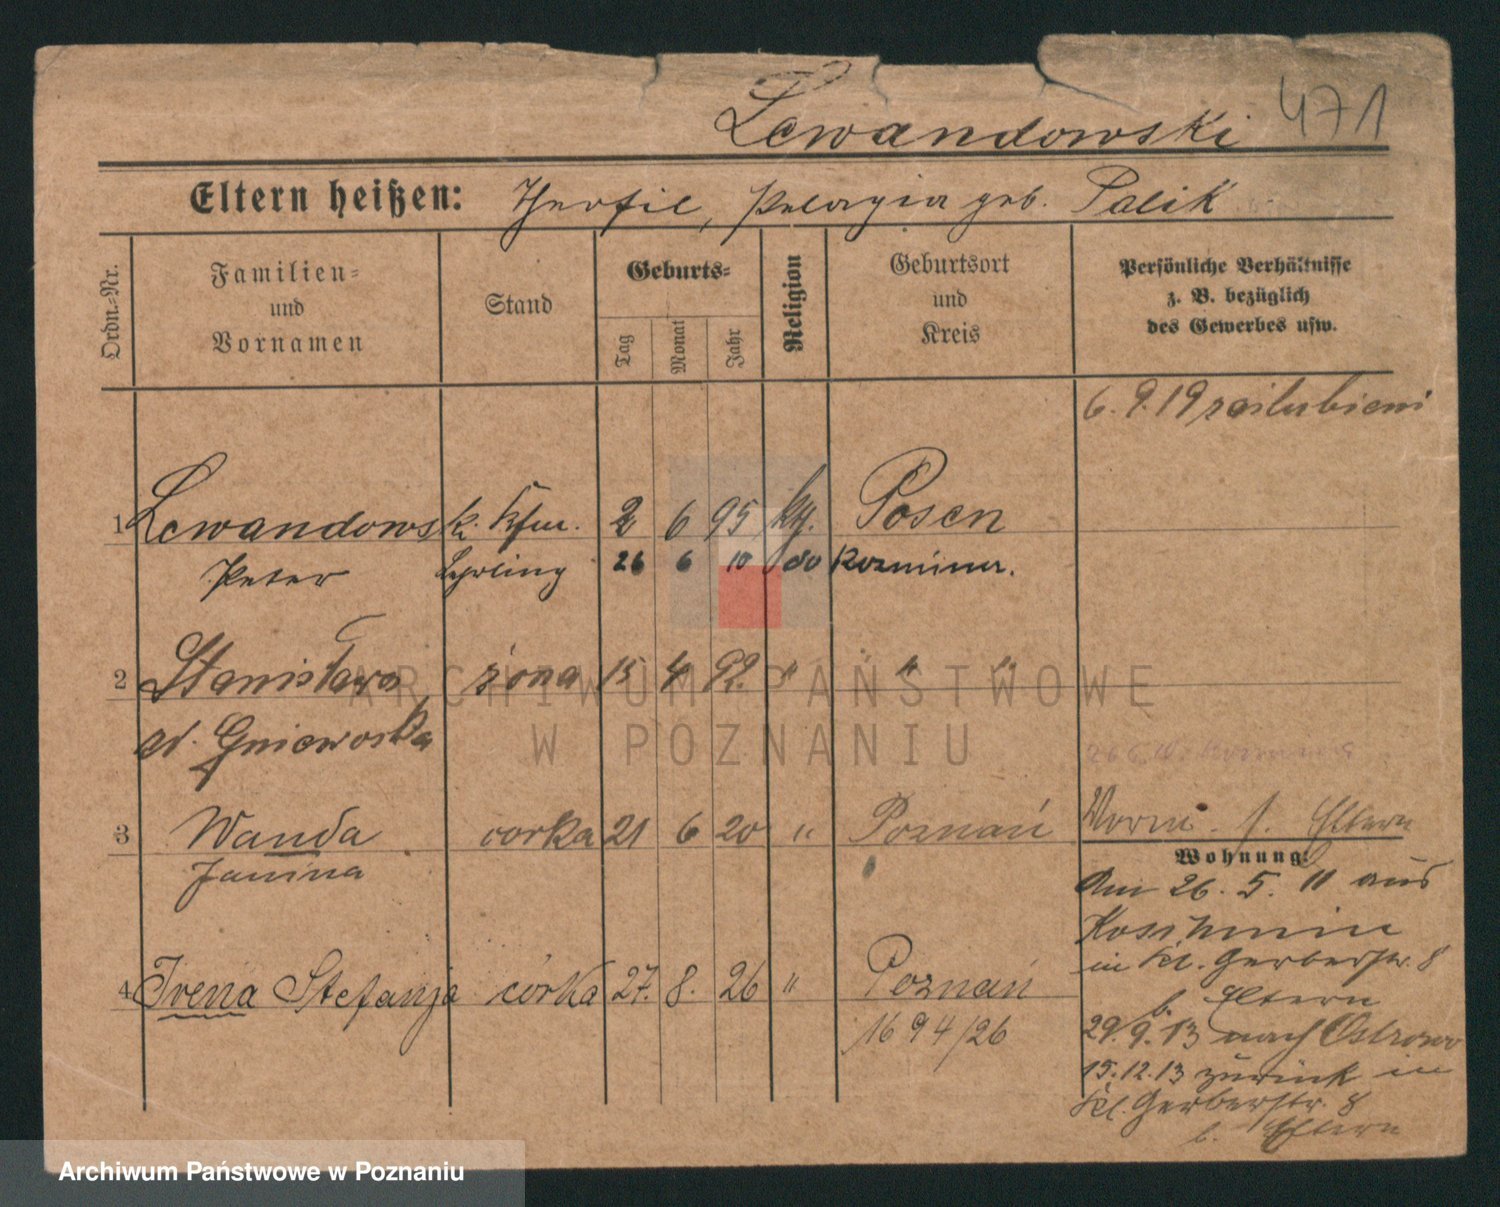 471
Lewandowski
Eltern heißen: Theofil, Pelagia geb. Palik
Ordn.-Nr.
Familien- und Vornamen
Stand
Geburts-
Tag
Monat
Jahr
Religion
Geburtsort und Kreis
Persönliche Verhältnisse
z. B. bezüglich
des Gewerbes usw.
6. 9. 19 zaślubieni
1 Lewandowsk. Kfm. 2 6 95 kt. Posen
Peter Lehrling 26 6 10 do Kozminer.
2 Stanisława żona 15 4 92 " " "
Gniewoska
3 Wanda corka 21 6 20 " Poznań
Janina
4 Irena Stefanja córka 27. 8. 26 " Poznań
1694/26
Eltern
Wohnung:
Am 26. 5. 11 aus
Koschmin
in Kl. Gerberstr. 8
b. Eltern
29. 9. 13 nach Ostrowo
15. 12. 13 zurück in
Kl. Gerberstr. 8
b. Eltern
ARCHIWUM PAŃSTWOWE
W POZNANIU
Archiwum Państwowe w Poznaniu